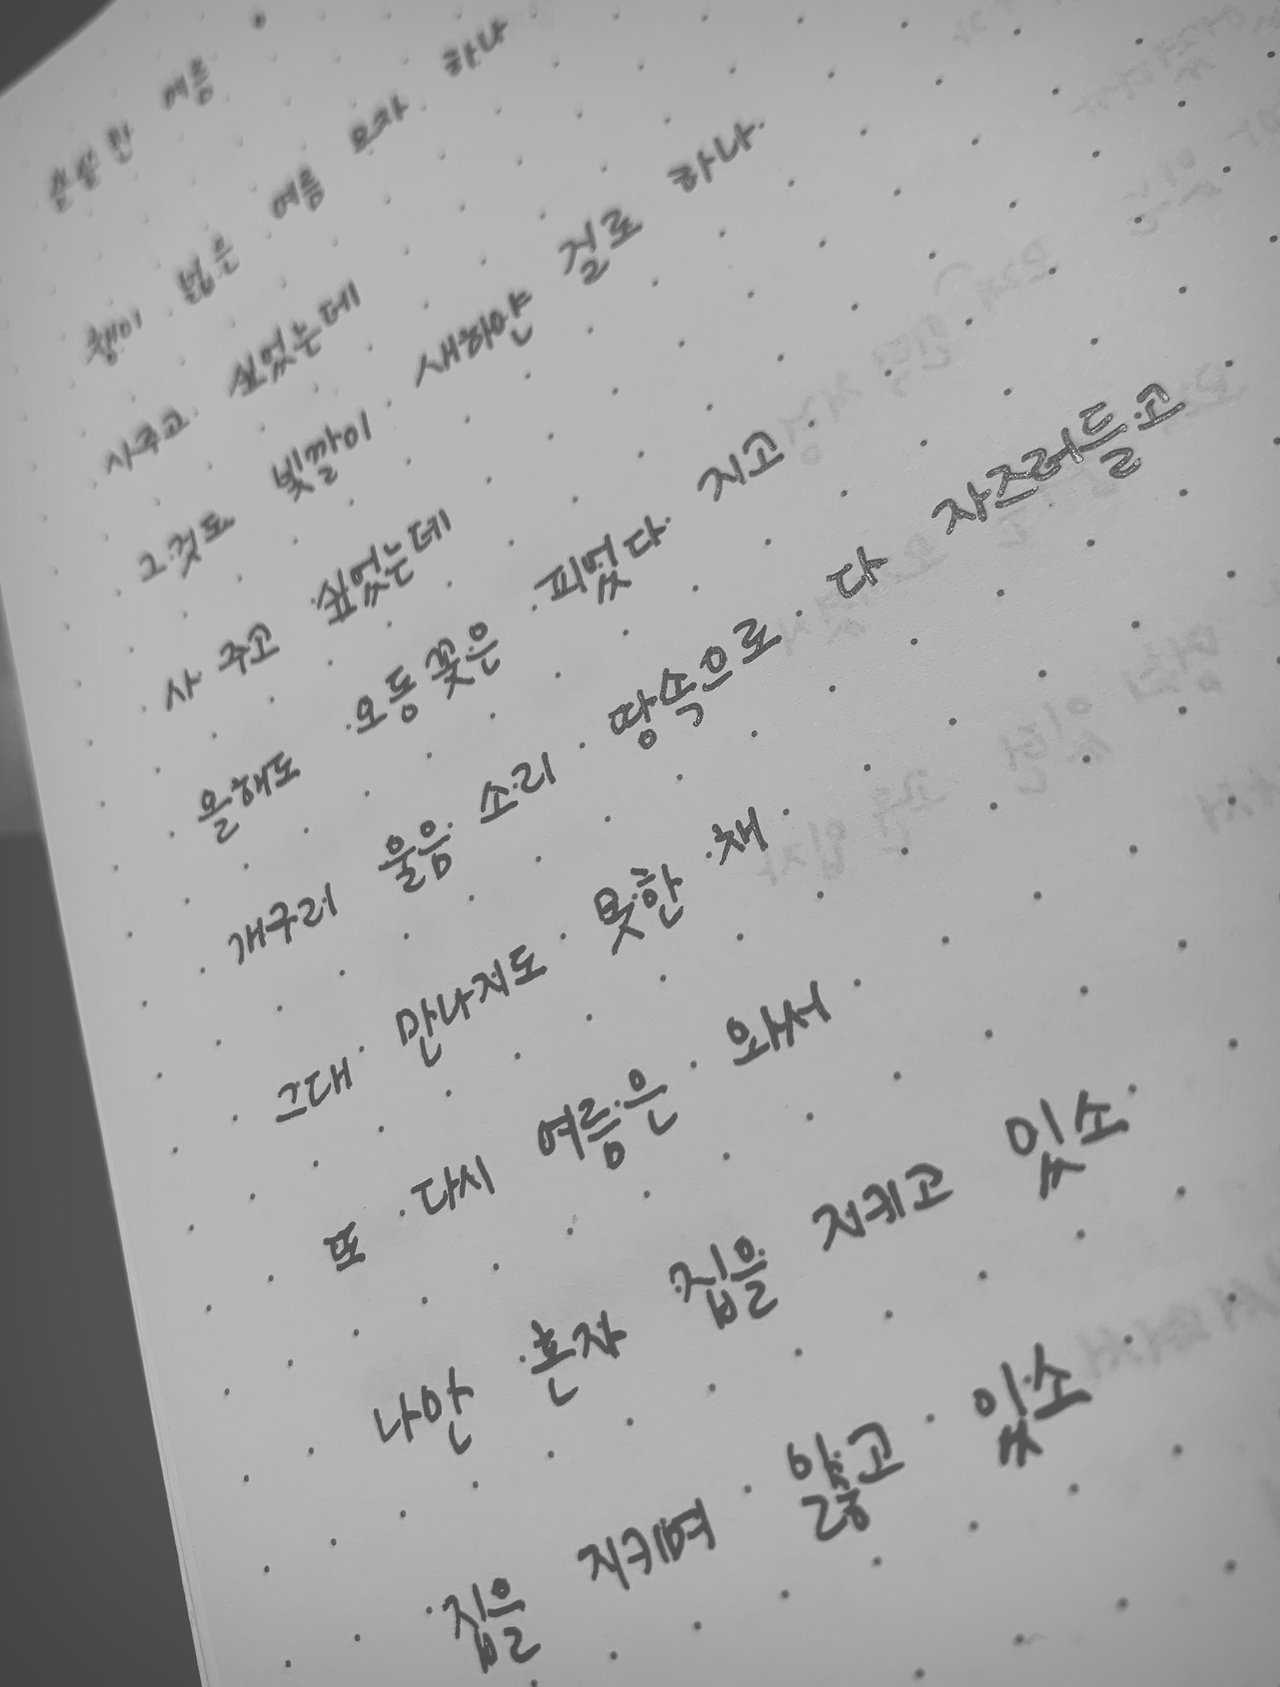 쓸쓸한 여름
챙이 넓은 여름 모자 하나
사주고 싶었는데
그것도 빛깔이 새하얀 걸로 하나
사주고 싶었는데
올해도 오동꽃은 피었다 지고
개구리 울음 소리 땅속으로 다 자즈러들고
그대 만나지도 못한 채
또 다시 여름은 와서
나만 혼자 집을 지키고 있소
집을 지키며 앓고 있소